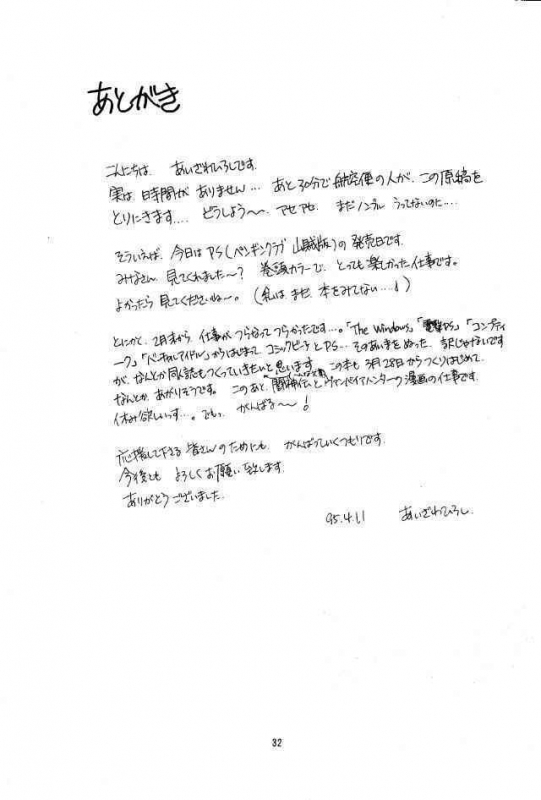 あとがき
こんにちは あいざわひろしです.
実は 時間が ありません… あと30分で 航空便の人が、この原稿を
とりにきます…. どうしよう〜、アセアセ. まだノンブル うってないのに….
そういえば、今日は PS(ペンギンクラブ 山賊版)の 発売日です.
みなさん 見てくれました〜? 巻頭カラーで、とっても楽しかった仕事です。
よかったら 見てくださいね〜。(私は まだ 本をみてない…!)
とにかく、2月末から 仕事が つらなって つらかったです…。「The Windows」「電撃PS」「コンプティ
ーク」「バーチャルアイドル」からはじまって コミックピーチ と PS… そのあいまをぬった 訳じゃないです
が、なんとか 同人誌も つくっていきたいと 思います. この本も 3月28日から つくりはじめて、
なんとか、あがりそうです. このあと、闘神伝と ヴァンパイアハンターの 漫画の仕事です.
休み欲しいっす…。でもっ、がんばる〜!
応援して下さる 皆さんのためにも、がんばっていくつもりです.
今後とも よろしくお願い致します.
ありがとうございました.
95.4.11 あいざわひろし
32